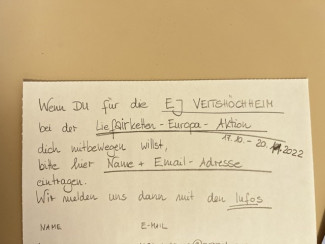 Wenn Du für die EJ VEITSHÖCHHEIM
bei der Lieferketten-Europa-Aktion
17.10. – 20.11.2022
dich mitbewegen willst,
bitte hier Name + Email-Adresse
eintragen.
Wir melden uns dann mit den Infos
NAME E-MAIL